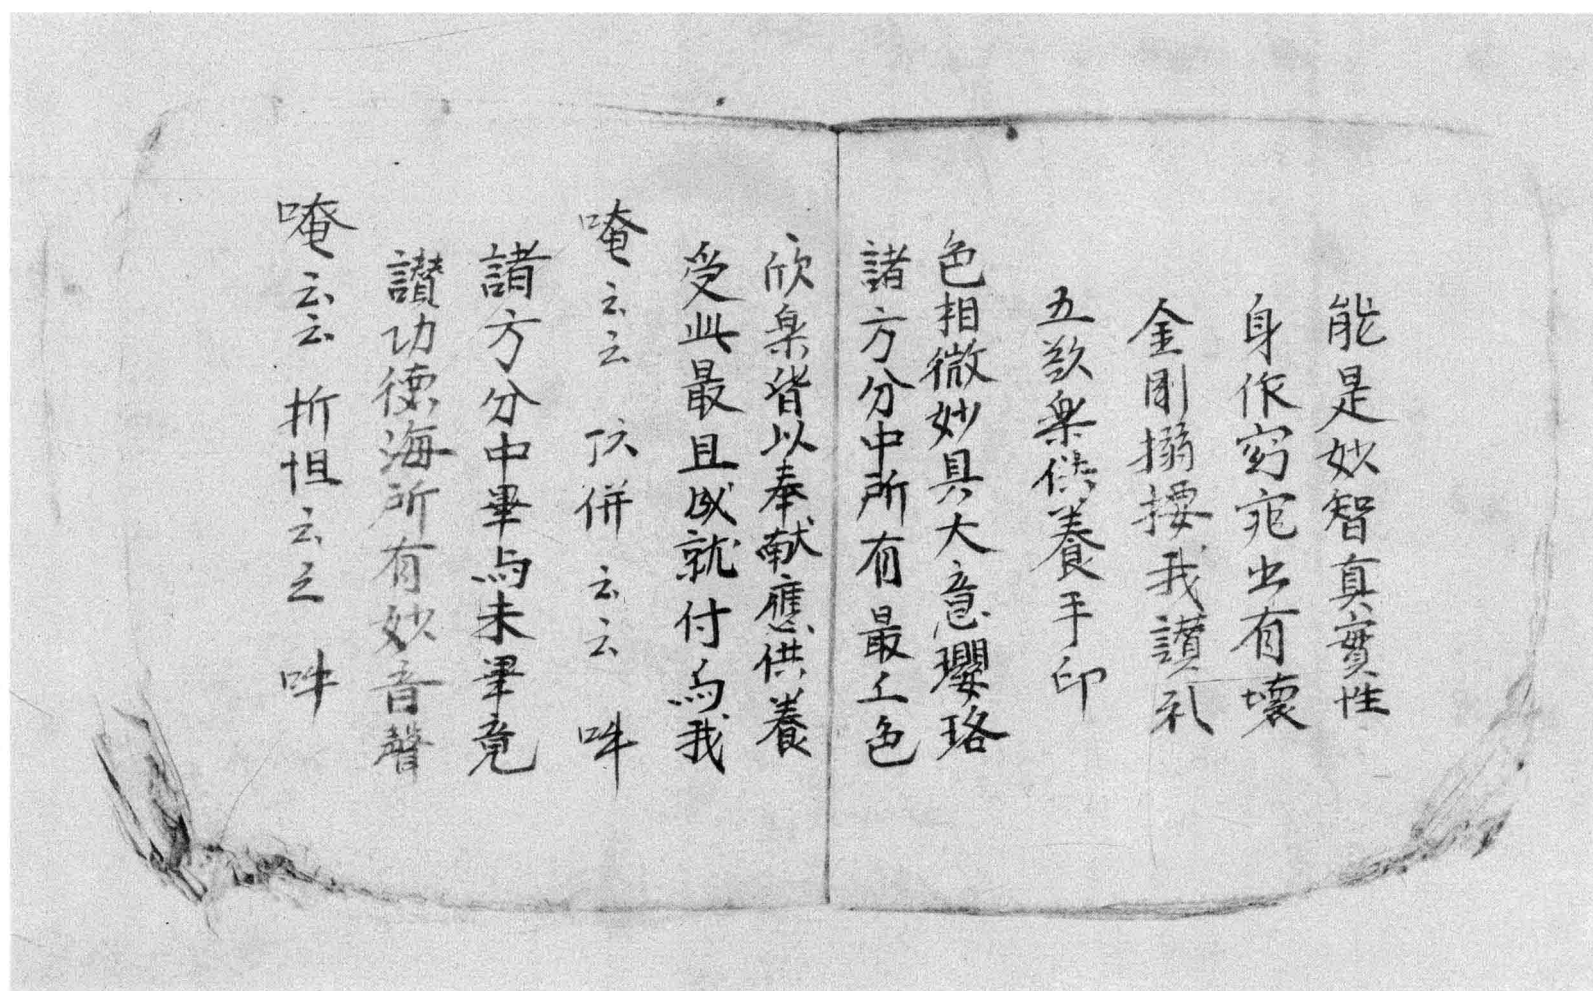 能是妙智真實性
身作窈窕出有壞
金剛搦𢴲我讃礼
五欲樂供養手印
色相微妙具大意瓔珞
諸方分中所有最上色
欣樂皆以奉献應供養
受此最且成就付与我
唵云云 併云云 吽
諸方分中畢与未畢竟
讃功德海所有妙音聲
唵云云 折怛云云 吽